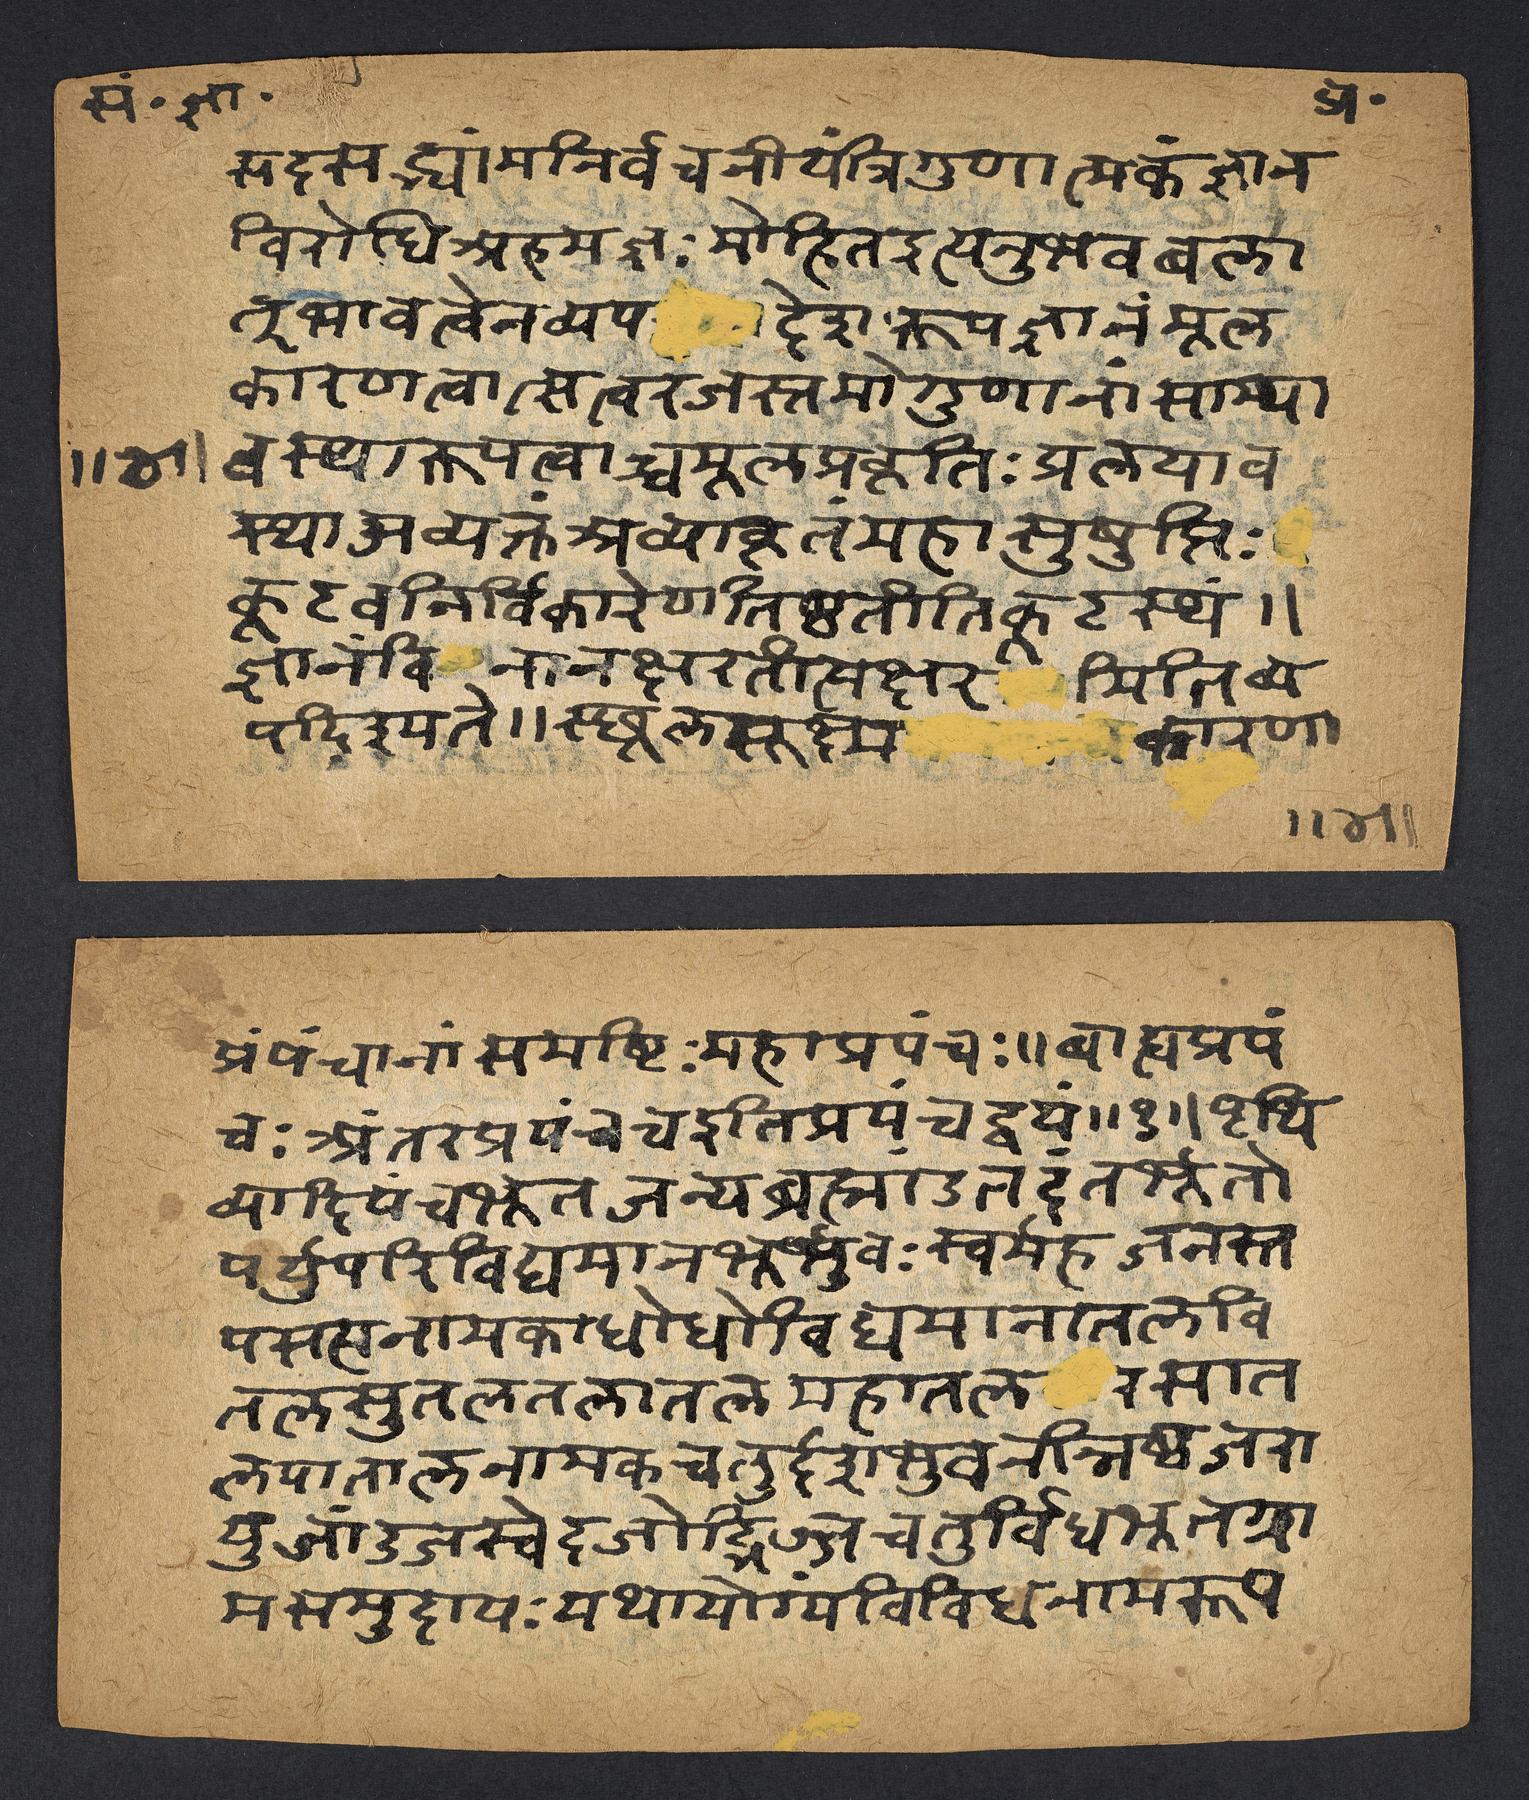 सं॰ज्ञा॰
प्र॰
सदसद्भ्यांमनिर्वचनीयंत्रिगुणात्मकंज्ञान
विरोधिअहमज्ञःमोहितइत्यनुभवबला
त्भावत्वेनव्यप द्देशरूपज्ञानंमूल
कारणत्वात्सत्वरजस्तमोगुणानांसाम्या
वस्थारूपत्वाच्चमूलप्रकृतिःप्रलयाव
॥४॥
स्थाअव्यक्तंअव्याकृतंमहासुषुप्तिः
कूटवनिर्विकारेणतिष्ठतीतिकूटस्थं॥
ज्ञानंवि नानक्षरतीत्यक्षर मितिव्य
पदिश्यते॥स्छूलसूक्ष्म कारणा
॥४॥
प्रंपंचानांसमष्टिःमहाप्रपंचः॥बाह्यप्रपं
चःअंतरप्रपंचचइतिप्रपंचद्वयं॥१॥पृथि
व्यादिपंचभूतजन्यब्रह्मांडतदंतर्भूतो
पर्युपरिविद्यमानभूर्भुवःस्वर्महजनस्त
पसत्यनामकाधोधोविद्यमानातलवि
तलसुतलतलातलमहातल रसात
लपातालनामकचतुर्द्दशभुवनीन्निष्ठजरा
युजांडजस्वेदजोद्भिज्जचतुर्विधभूतग्रा
मसमुदायःयथायोग्यंविविधनामरूप